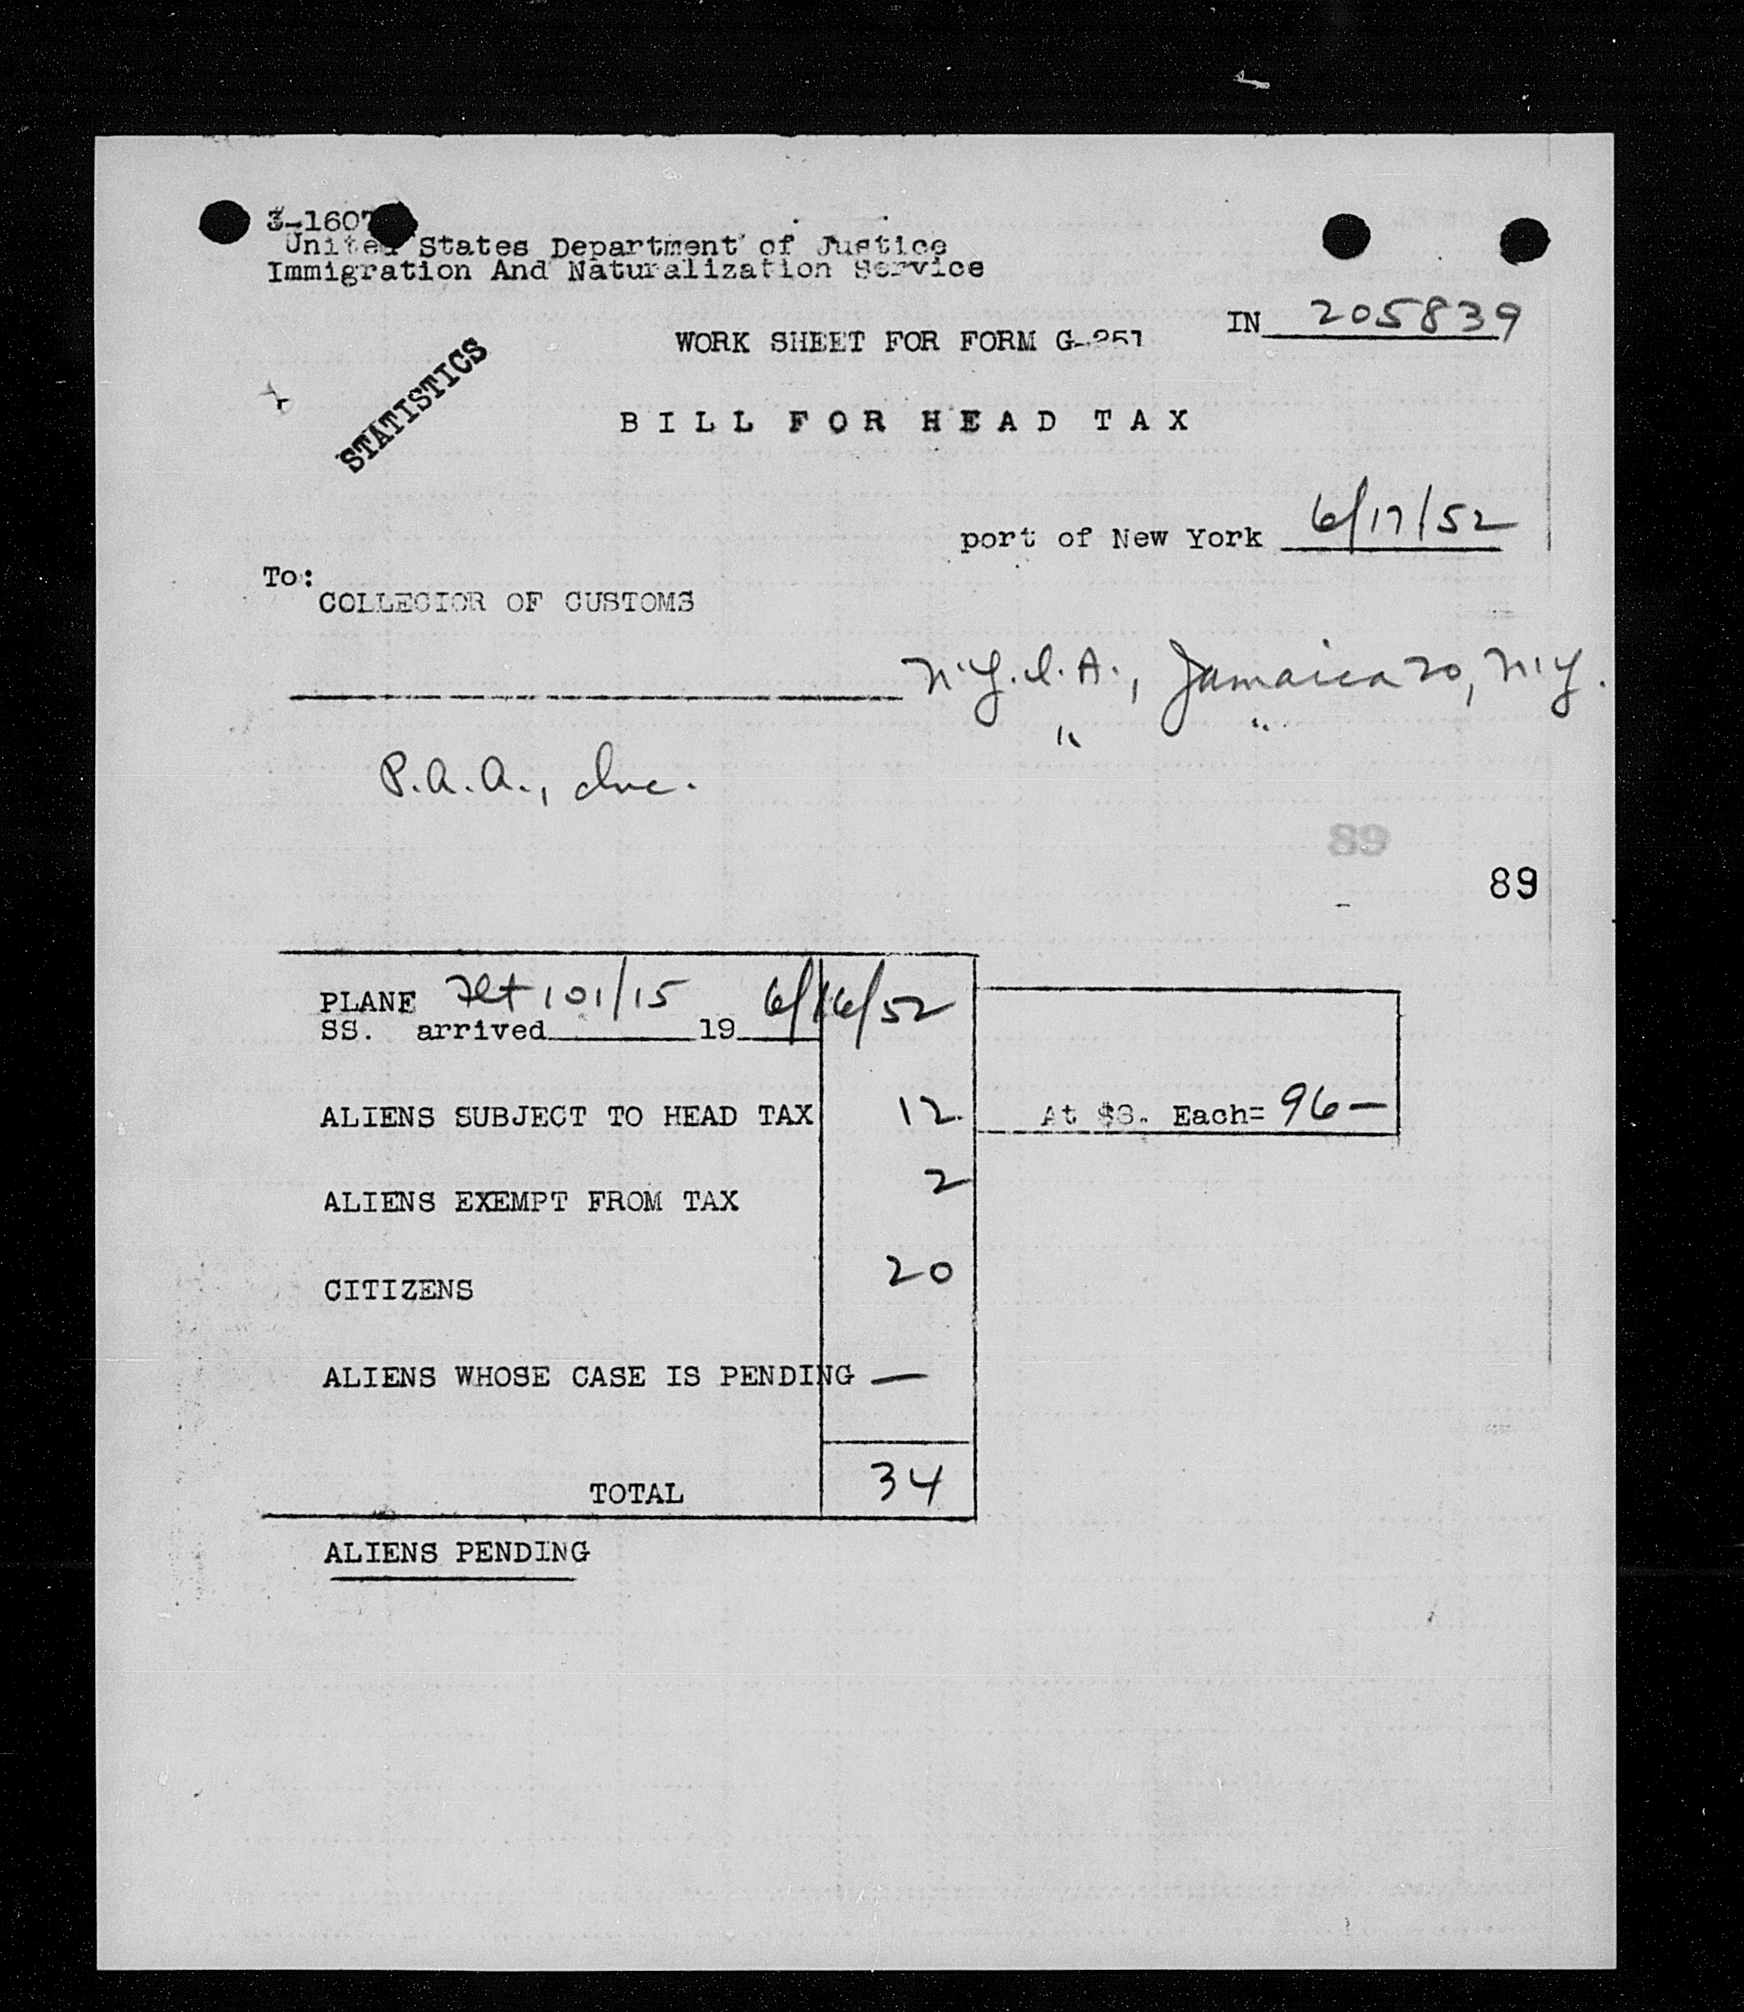 3-1607
United States Department of Justice
Immigration And Naturalization Service
IN 205839
WORK SHEET FOR FORM G-251
STATISTICS
BILL FOR HEAD TAX
port of New York 6/17/52
To:
COLLECTOR OF CUSTOMS
N.Y.I.A., Jamaica 20, N.Y.
" "
P.A.A., Inc.
89
89
PLANE Flt 101/15 6/16/52
SS. arrived 19
ALIENS SUBJECT TO HEAD TAX 12 At $8. Each= 96—
ALIENS EXEMPT FROM TAX 2
CITIZENS 20
ALIENS WHOSE CASE IS PENDING —
TOTAL 34
ALIENS PENDING